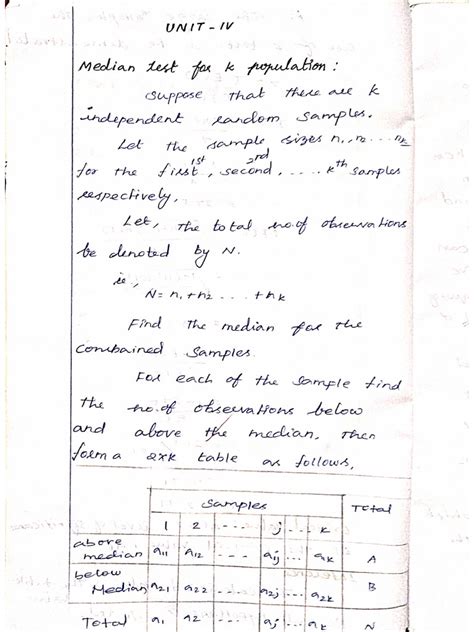 UNIT - IV
Median test for k population :
Suppose that there are k
independent random samples.
Let the sample sizes n1, n2 ... nk
for the first 1st, second 2nd, .... kth samples
respectively.
Let, the total no. of observations
be denoted by N.
ie,
N = n1 + n2 ... + nk
Find the median for the
combained samples.
For each of the sample find
the no. of observations below
and above the median. Then
form a 2xk table as follows.
Samples Total
1 2 --- j --- k
above median a11 a12 --- a1j --- a1k A
below Median a21 a22 --- a2j --- a2k B
Total a.1 a.2 --- a.j --- a.k N